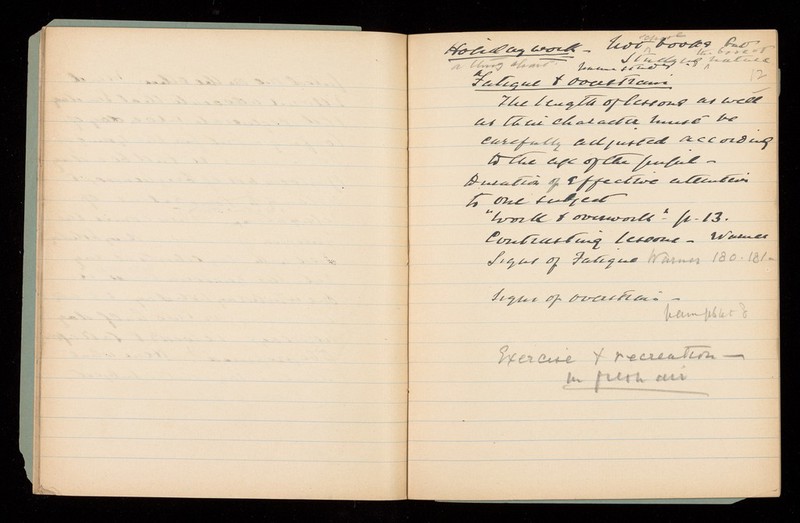 Holiday work - Not books but
studying nature
12
Fatigue & overstrain
The length of lessons as well
as their character must be
carefully adjusted according
to the age of the pupil -
Duration of effective attention
to one subject
"Work & overwork" - p. 13.
Contrasting lessons - Warner
Signs of Fatigue Warner 180-181-
Signs of overstrain -
pamphlet
Exercise & recreation -
in fresh air